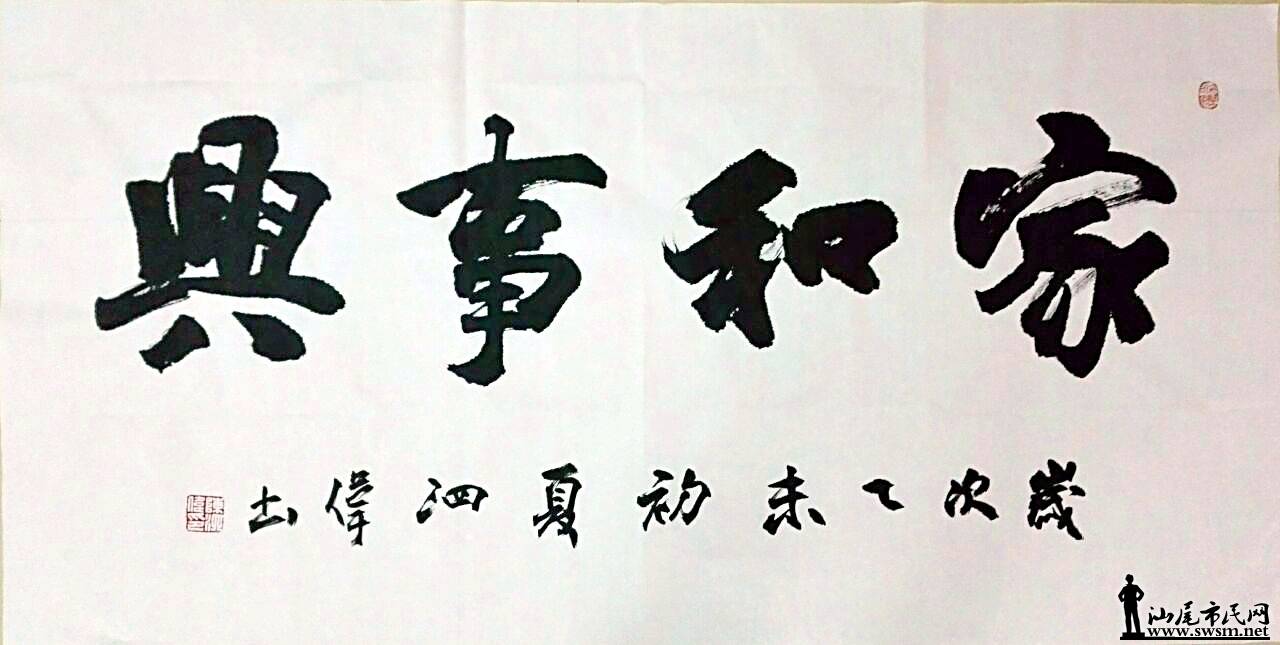 家和事興
歲次乙未初夏泗偉书
汕尾市民网
www.swsm.net